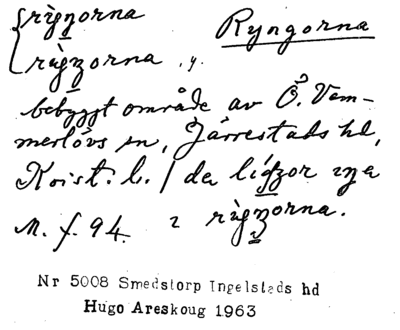 rìgnorna Ryngorna
rìgnorna, y.
bebyggt område av Ö. Vem-
merlövs sn, Järrestads hd,
Krist. l. / de
M. f. 94. rìgnorna.
Nr 5008 Smedstorp Ingelstads hd
Hugo Areskoug 1963